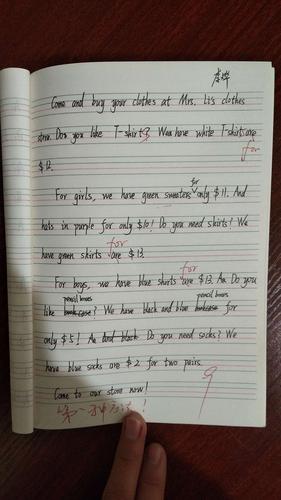 李烨
Come and buy your clothes at Mrs. Li's clothes
store. Do you like T-shirt? We have white T-shirts are for
$12.
For girls, we have green sweaters for only $11. And
hats in purple for only $10! Do you need skirts? We
have green skirts for are $13.
For boys, we have blue shorts for are $13. Do you
like pencil boxes? We have black and blue pencil boxes for
only $5! And black Do you need socks? We
have blue socks are $2 for two pairs.
Come to our store now!
第一种方法!